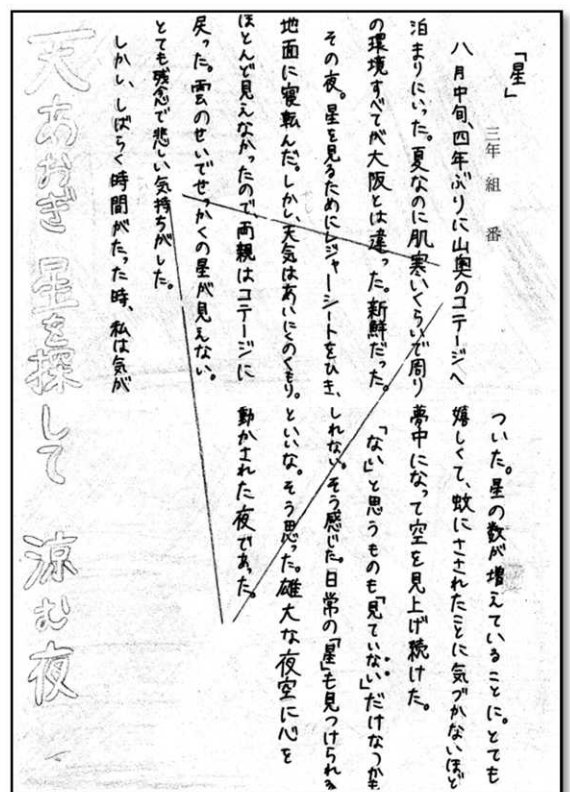 「星」
三年 組 番
八月中旬、四年ぶりに山奥のコテージへ
泊まりにいった。夏なのに肌寒いくらいで周り
の環境すべてが大阪とは違った。新鮮だった。
その夜。星を見るためにレジャーシートをひき、
地面に寝転んだ。しかし、天気はあいにくのくもり。
ほとんど見えなかったので、両親はコテージに
戻った。雲のせいでせっかくの星が見えない。
とても残念で悲しい気持ちがした。
しかし、しばらく時間がたった時、私は気が
ついた。星の数が増えていることに。とても
嬉しくて、蚊にさされたことに気づかないほど
夢中になって空を見上げ続けた。
「ない」と思うものも「見ていない」だけなのかも
しれない。そう感じた。日常の「星」も見つけられる
といいな。そう思った。雄大な夜空に心を
動かされた夜であった。
天あおぎ 星を探して 涼む夜